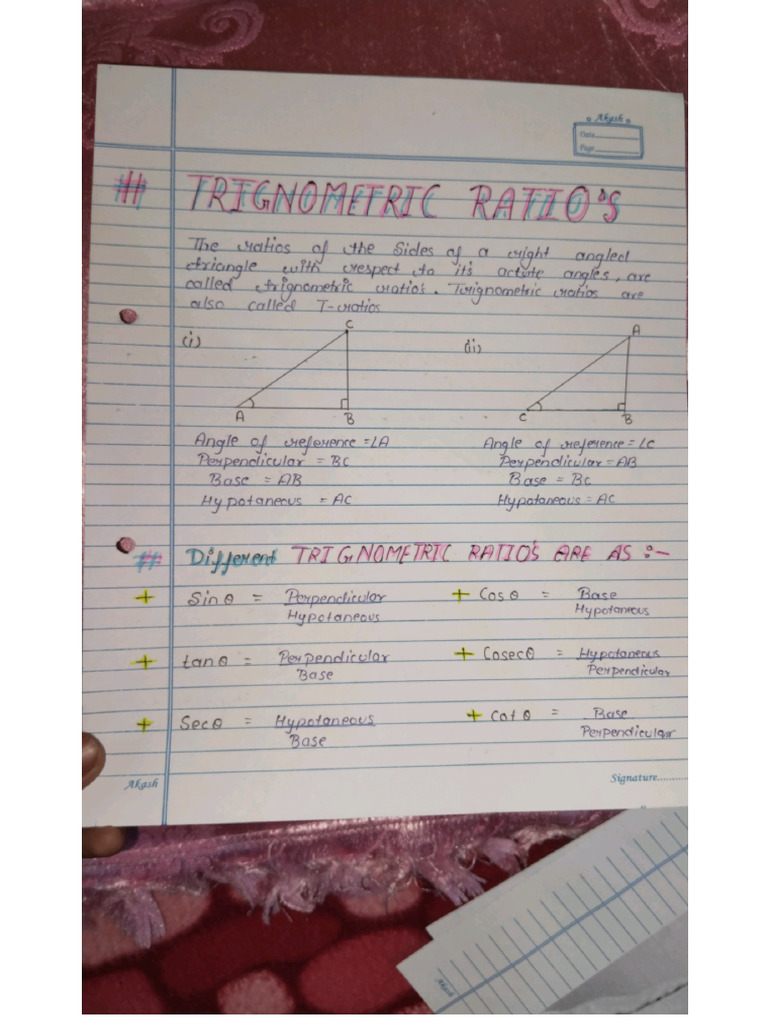 Akash
Date
Page
# TRIGNOMETRIC RATIO'S
The ratios of the Sides of a right angled
triangle with respect to it's actute angles, are
called trignometric ratio's. Trignometric ratios are
also called T-ratios
(i) C
(ii) A
A B
C B
Angle of reference = ∠A
Perpendicular = BC
Base = AB
Hypotaneous = AC
Angle of reference = ∠C
Perpendicular = AB
Base = BC
Hypotaneous = AC
# Different TRIGNOMETRIC RATIO'S ARE AS :-
+ Sinθ = Perpendicular
Hypotaneous
+ Cosθ = Base
Hypotaneous
+ tanθ = Perpendicular
Base
+ Cosecθ = Hypotaneous
Perpendicular
+ Secθ = Hypotaneous
Base
+ Cotθ = Base
Perpendicular
Akash
Signature..........
Akash